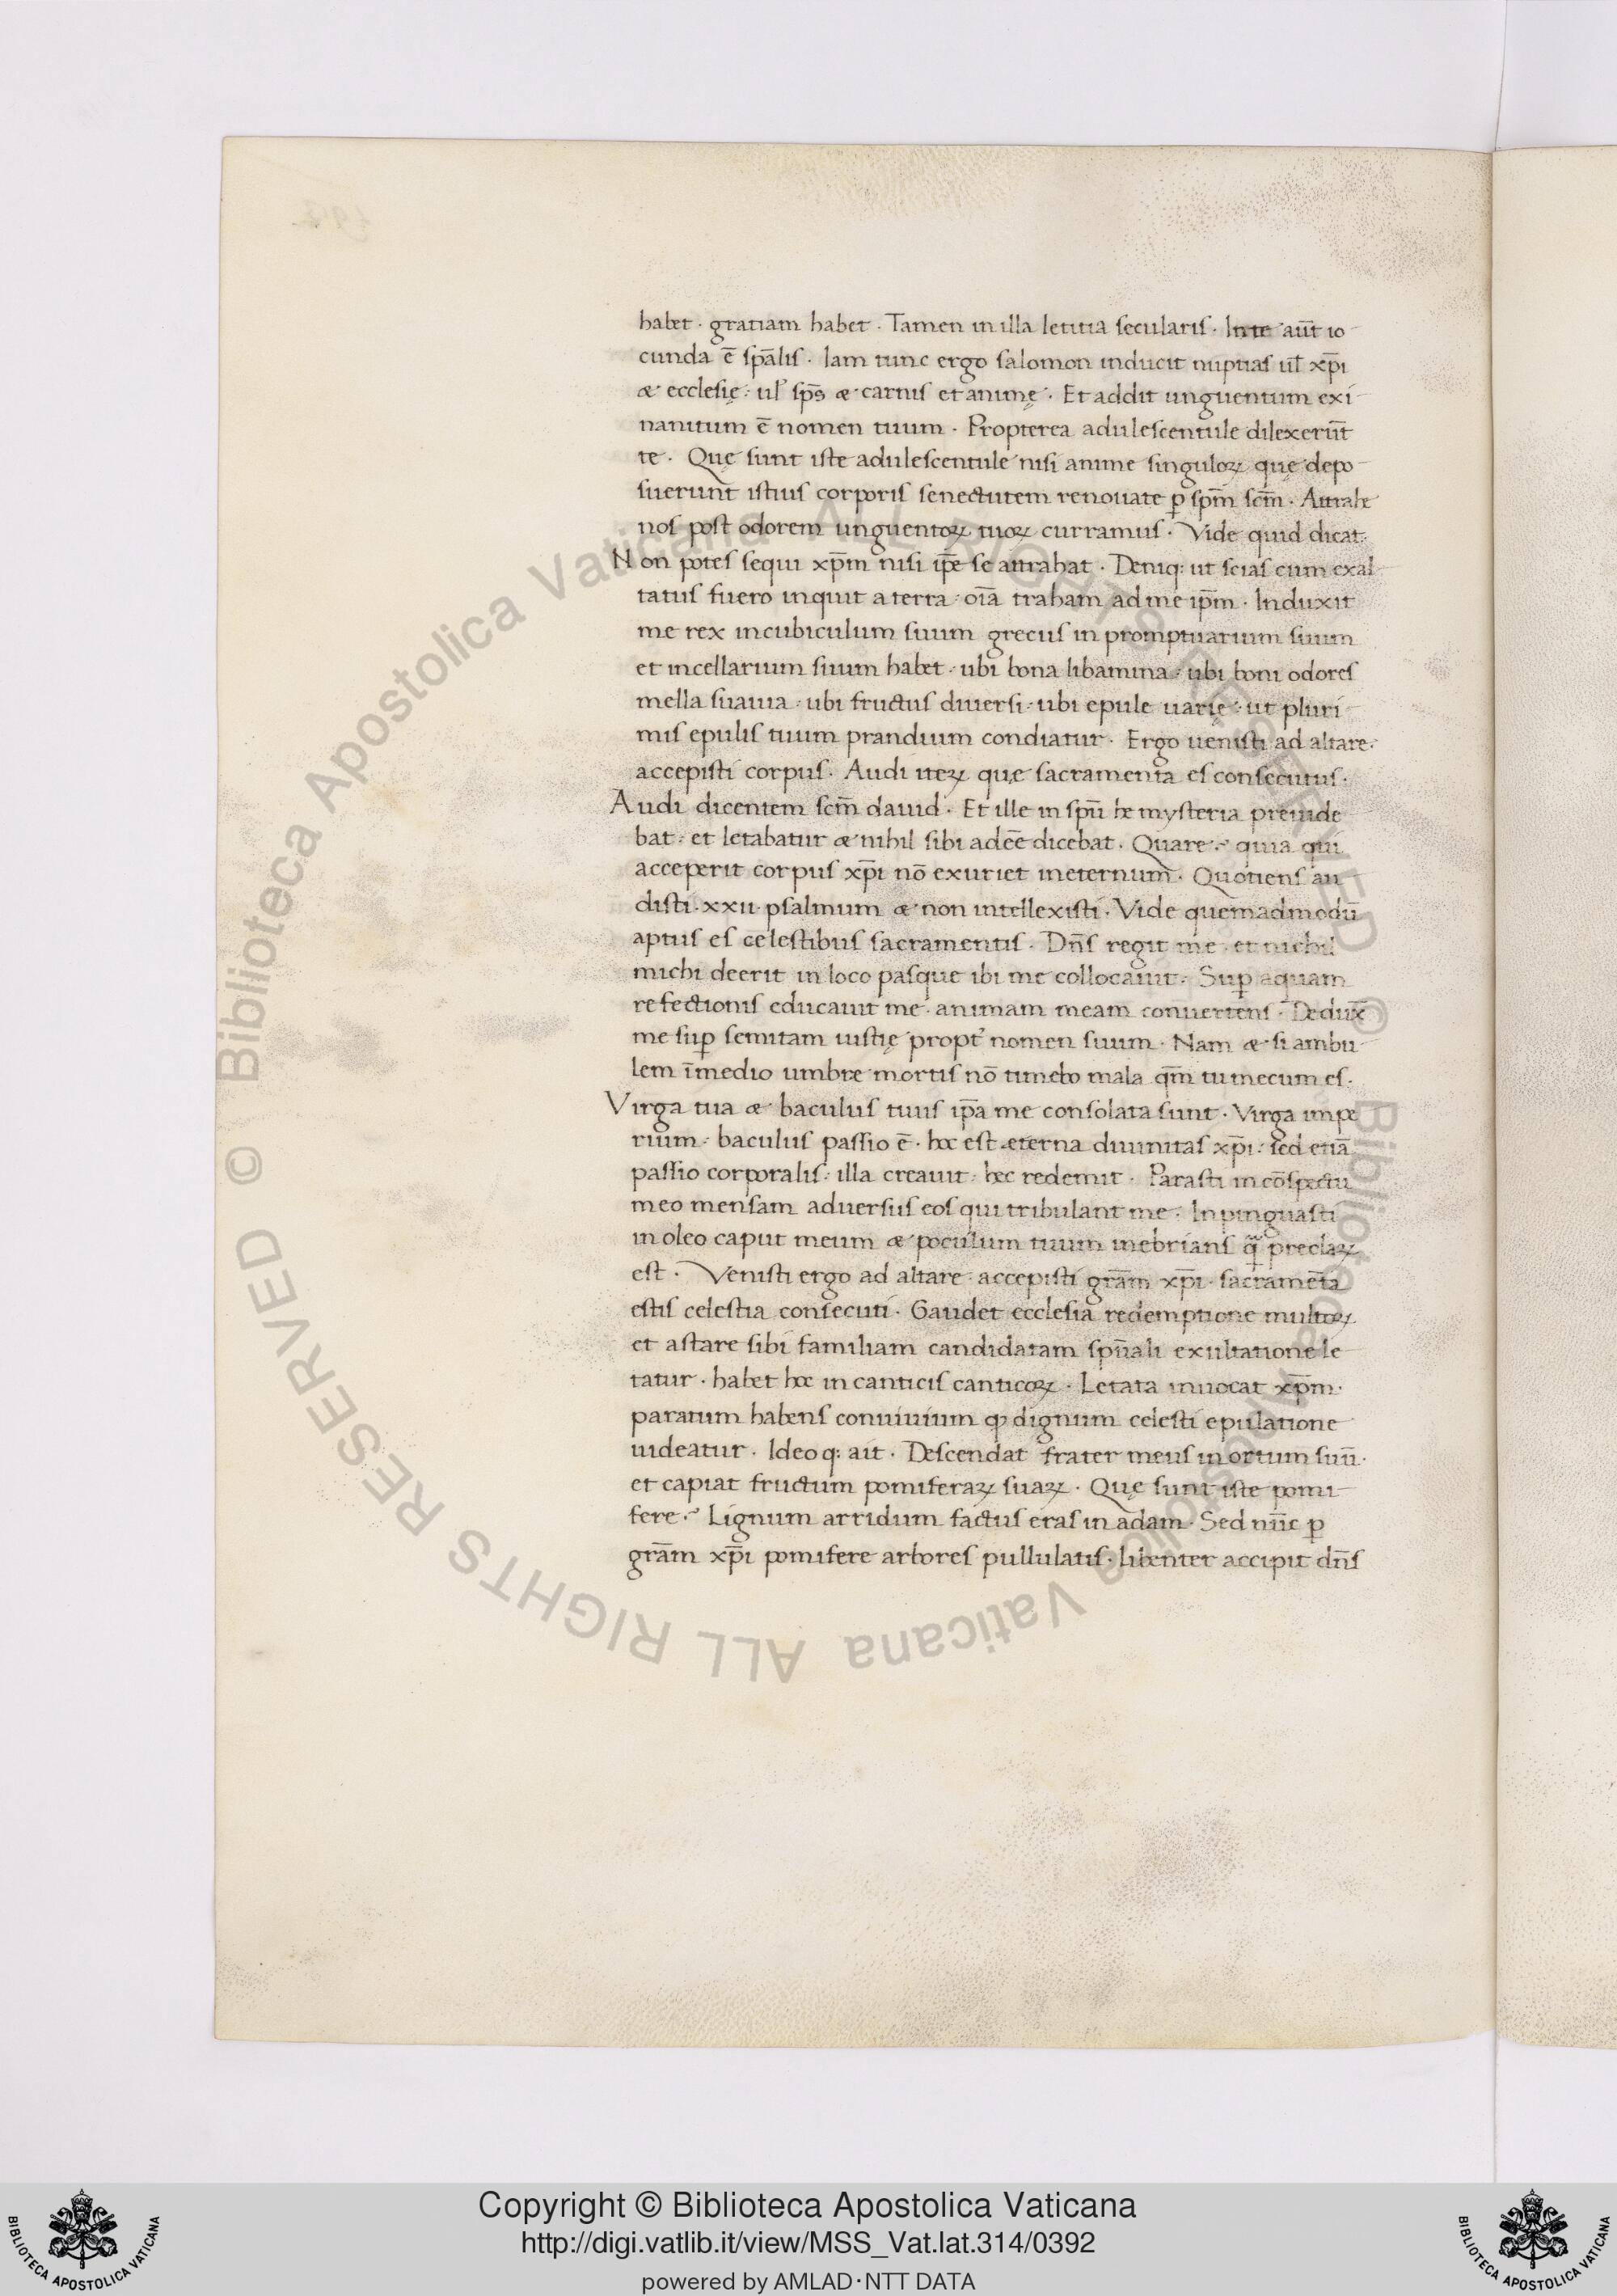 habet · gratiam habet · Tamen in illa letitia secularis · In te aūt io
cunda ē spālis · Iam tunc ergo salomon inducit nuptias ul̄ xp̄i
& ecclesię : ul̄ sp̄s & carnis et animę · Et addit unguentum exi
nanitum ē nomen tuum · Propterea adulescentule dilexerūt
te · Quę sunt iste adulescentule nisi anime singuloꝝ quę depo
suerunt istius corporis senectutem renouate ꝑ sp̄m sc̄m · Attrahe
nos post odorem unguentoꝝ tuoꝝ curramus · Vide quid dicat :
Non potes sequi xp̄m nisi ip̄e se attrahat · Deniq: ut scias cum exal
tatus fuero inquit a terra : oīa traham ad me ip̄m · Induxit
me rex in cubiculum suum grecus in promptuarium suum
et in cellarium suum habet : ubi bona libamina : ubi boni odores
mella suauia : ubi fructus diuersi : ubi epule uarię : ut pluri
mis epulis tuum prandium condiatur · Ergo uenisti ad altare ·
accepisti corpus · Audi iteꝝ quę sacramenta es consecutus ·
Audi dicentem sc̄m dauid · Et ille in spū hec mysteria preuide
bat : et letabatur & nihil sibi adeē dicebat · Quare : quia qui
acceperit corpus xp̄i nō exuriet in eternum · Quotiens au
disti · xxii · psalmum & non intellexisti · Vide quemadmodū
aptus es celestibus sacramentis · Dn̄s regit me · et nichil
michi deerit in loco pasque ibi me collocauit · Suꝑ aquam
refectionis educauit me · animam meam conuertens · Dedux̄
me suꝑ semitam iustię propt̕ nomen suum · Nam & si ambu
lem ī medio umbre mortis nō timebo mala qm̄ tu mecum es ·
Virga tua & baculus tuus ip̄a me consolata sunt · Virga impe
rium : baculus passio ē · hoc est eterna diuinitas xp̄i : sed etiā
passio corporalis : illa creauit : hec redemit · Parasti in cōspectu
meo mensam aduersus eos qui tribulant me · Inpinguasti
in oleo caput meum & poculum tuum inebrians q̄ preclaꝝ
est · Venisti ergo ad altare · accepisti grām xp̄i · sacramēta
estis celestia consecuti · Gaudet ecclesia redemptione multoꝝ
et astare sibi familiam candidatam spūali exultatione le
tatur · habet hoc in canticis canticoꝝ · Letata inuocat xp̄m ·
paratum habens conuiuium ꝙ dignum celesti epulatione
uideatur · Ideoq: ait · Descendat frater meus in ortum suū ·
et capiat fructum pomiferaꝝ suaꝝ · Quę sunt iste pomi
fere · Lignum arridum factus eras in adam · Sed nūc ꝑ
grām xp̄i pomifere arbores pullulatis · libenter accipit dn̄s
© Biblioteca Apostolica Vaticana ALL RIGHTS RESERVED © Biblioteca Apostolica Vaticana ALL RIGHTS RESERVED
Copyright © Biblioteca Apostolica Vaticana
http://digi.vatlib.it/view/MSS_Vat.lat.314/0392
powered by AMLAD·NTT DATA
BIBLIOTECA APOSTOLICA VATICANA
BIBLIOTECA APOSTOLICA VATICANA